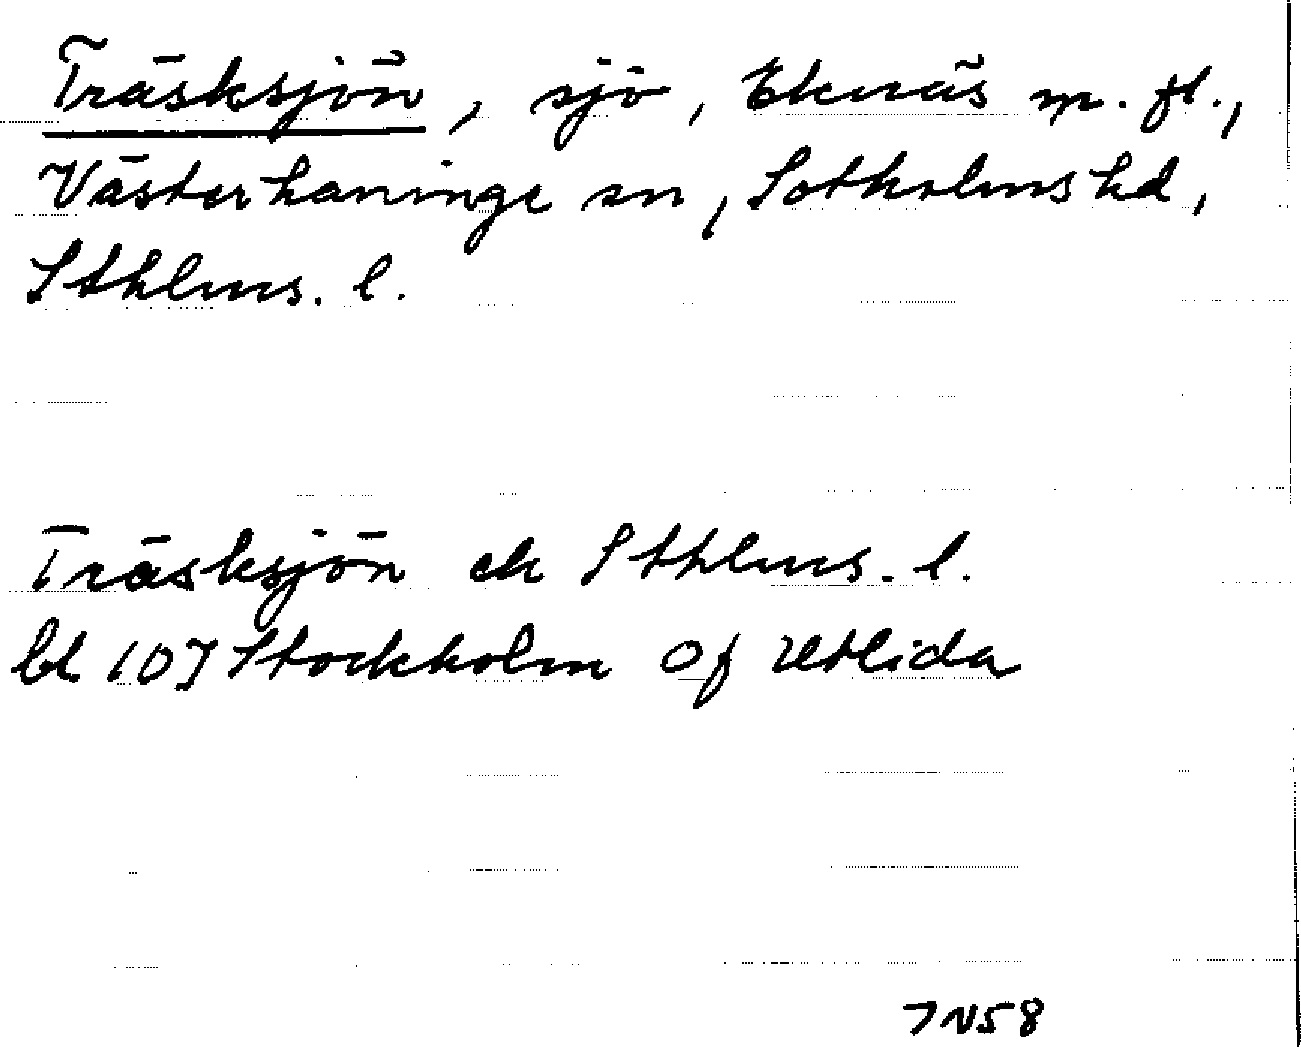 Träsksjön, sjö, Eknäs m. fl.,
Västerhaninge sn, Sotholms hd,
Sthlms. l.
Träsksjön ek Sthlms. l.
bl 107 Stockholm Of Utlida
7N58